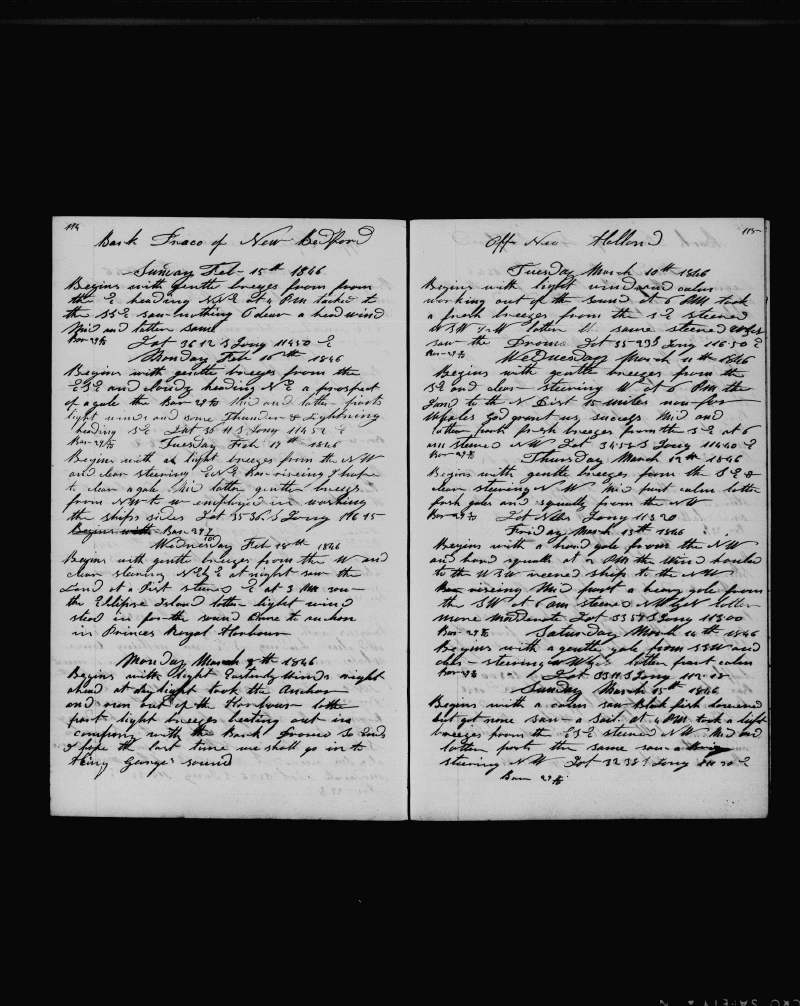 114
Bark Draco of New Bedford
Sunday Feb - 15th 1846
Begins with gentle breezes from from
the E heading NNE at 4 PM tacked to
the SSE saw nothing O dear a head wind
Mid and latter same
Bar 29 Lat 36 12 S Long 114 50 E
Monday Feb 16th 1846
Begins with gentle breezes from the
ESE and cloudy heading NE a prospect
of a gale the Bar 29 Mid and latter parts
light winds and some Thunder & Lightning
heading SE Lat 36 11 S Long 114 52 E
Bar 29 Tuesday Feb 17th 1846
Begins with light breezes from the NW
and clear steering ENE Bar riseing I hope
to clear a gale Mid latter gentle breezes
from NW to W employed in working
the ships sides Lat 35 36 S Long 116 15
Begins with Bar 29
Wednesday Feb 18th 1846
Begins with gentle breezes from the W and
clear steering at night saw the
Land at a Dist steered E at 3 PM saw
the Ellipse Island latter light wind
stood in for the sound Came to anchor
in Princes Royal Harbour
Monday March 9th 1846
Begins with light Easterly winds night
ahead at day light took the Anchor
and run out of the Harbour latter
part light breezes beating out in
company with the Bark so Ends
I hope the last time we shall go in to
King Georges sound
115
Off New Holland
Tuesday March 10th 1846
Begins with light wind and calm
working out of the sound at 6 PM took
a fresh breezes from the SE steered
latter the same steered
saw the Lat 35-23 S Long 116 50 E
Bar 29 Wednesday March 11th 1846
Begins with gentle breezes from the
SE and clear - steering W at 6 PM the
Land to the N Dist 15 miles now for
Whales God grant us success Mid and
latter parts fresh breezes from the SE at 6
am steered NW Lat 34 52 S Long 114 40 E
Bar 29 Thursday March 12th 1846
Begins with gentle breezes from the SE &
clear steering NW Mid part calm latter
fresh gales and squally from the NW
Bar 29 Lat Long 113 20
Friday March 13th 1846
Begins with a hard gale from the NW
and hard squalls at 2 PM the Wind hauled
to the WSW veered ships to the NW
Bar riseing Mid part a heavy gale from
the SW at 6 am steered latter
more moderate Lat 33 58 S Long 113 00
Bar 29 Saturday March 14th 1846
Begins with a gentle gale from SSW and
clear - steering latter part calm
Bar 29 Lat 33 11 S Long
Sunday March 15th 1846
Begins with a calm saw Black fish lowered
but got none saw a Sail at 4 PM took a light
breezes from the ESE steered NW Mid and
latter parts the same saw a
steering NW Lat 32 38 S Long E
Bar 29